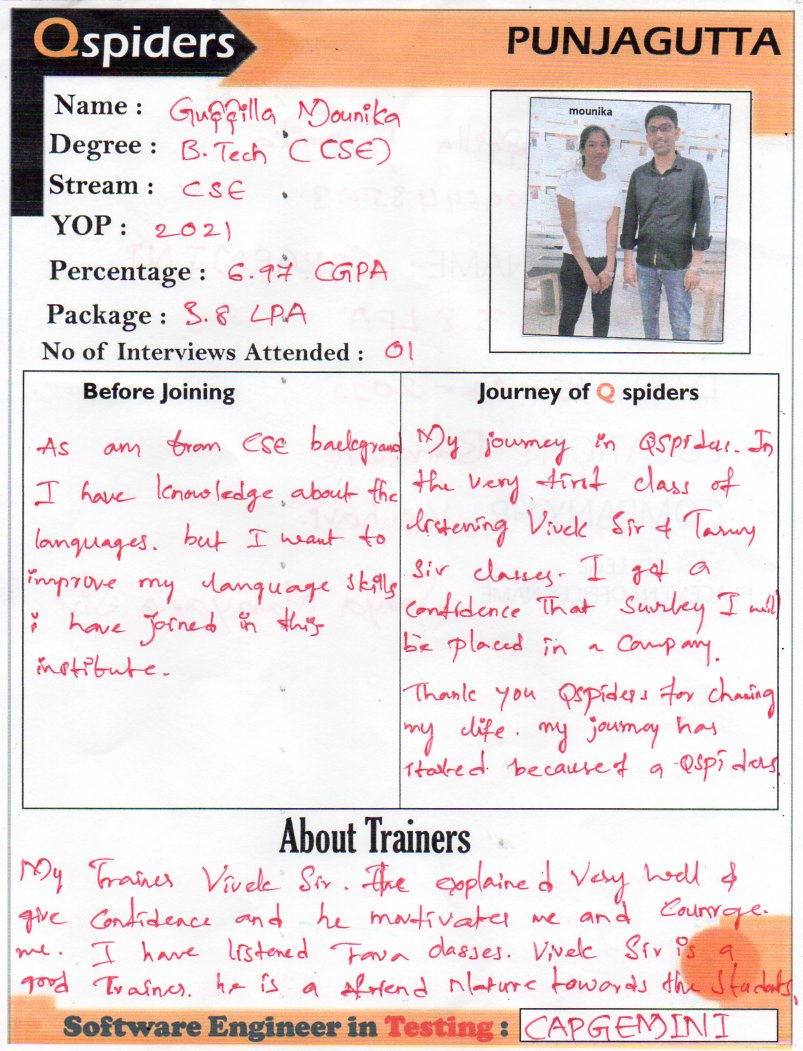 Qspiders
PUNJAGUTTA
Name : Guffilla Mounika
Degree : B.Tech (CSE)
Stream : CSE
YOP : 2021
Percentage : 6.97 CGPA
Package : 3.8 LPA
No of Interviews Attended : 01
mounika
Before Joining
As am from CSE background
I have knowledge about the
languages. but I want to
improve my language skills
i have joined in this
institute.
Journey of Q spiders
My journey in QSpiders. In
the very first class of
listening Vivek Sir & Tarun
Sir classes. I got a
confidence That Surley I will
be placed in a Company.
Thank you Qspiders for chaning
my life. my journey has
started because of a QSpiders.
About Trainers
My Trainer Vivek Sir. He explained Very well &
give Confidence and he motivates me and Courage.
me. I have listened Java classes. Vivek Sir is a
good Trainer. he is a friend Nature towards the students.
Software Engineer in Testing : CAPGEMINI